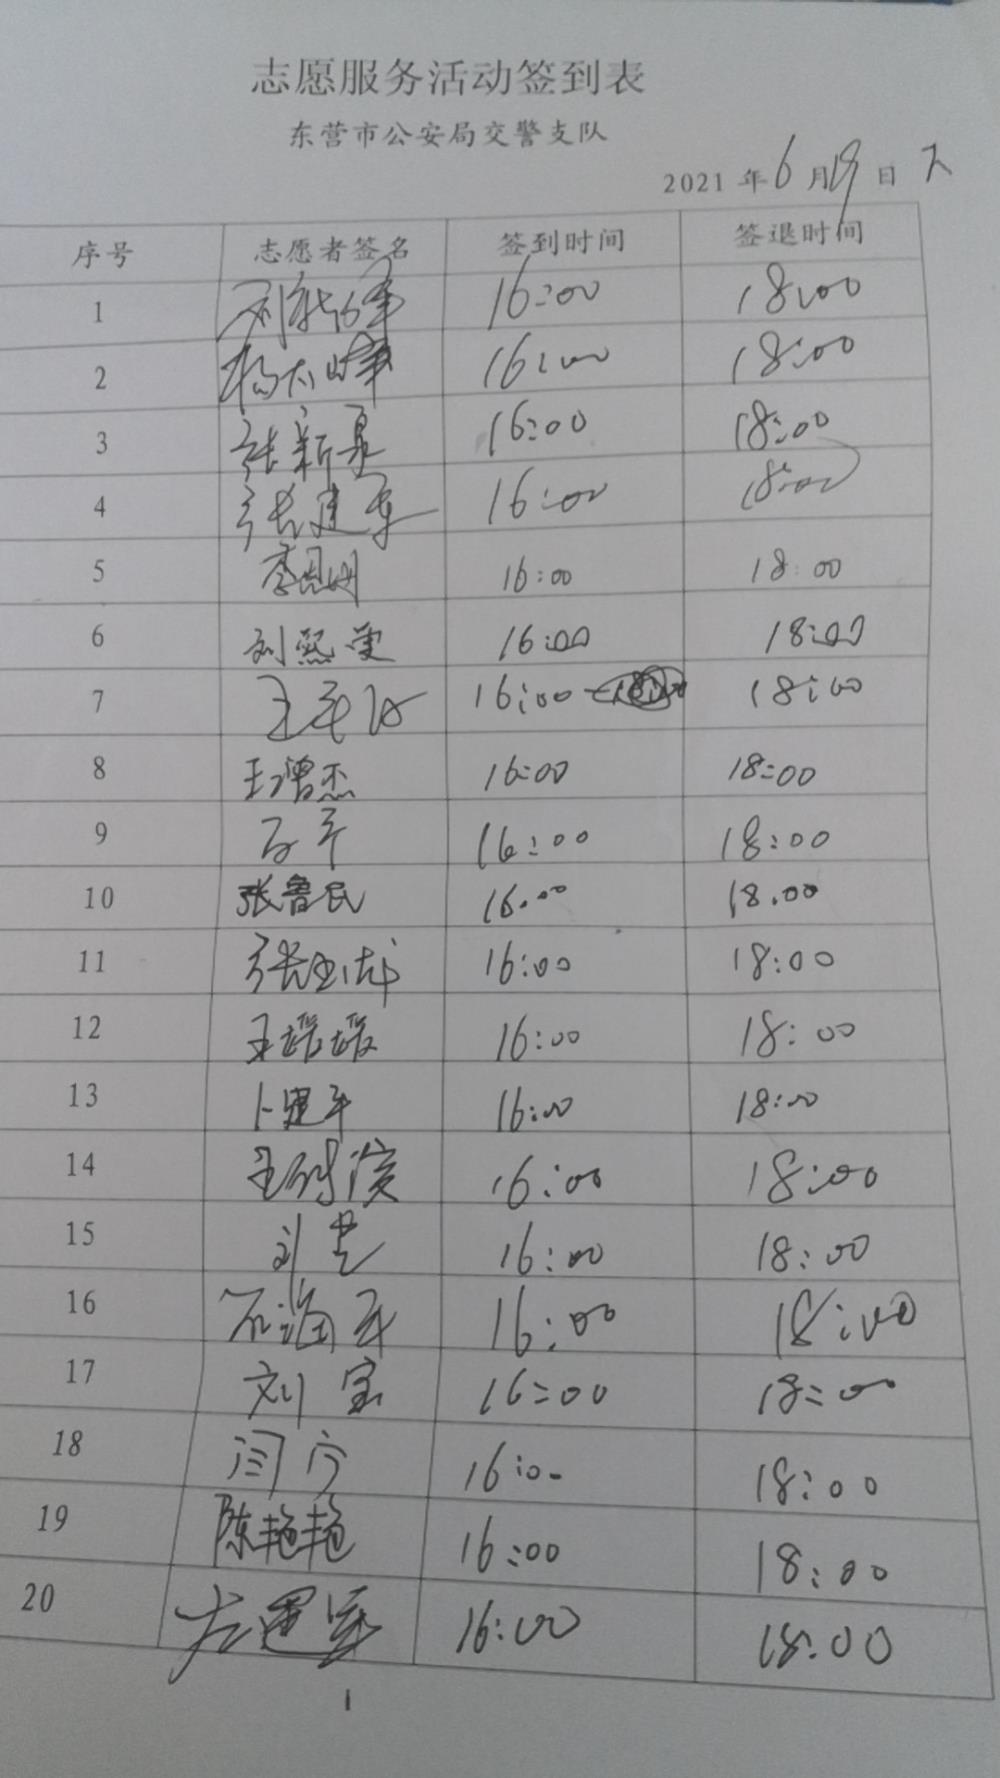 志愿服务活动签到表
东营市公安局交警支队
2021 年 6 月 19 日 下
序号 志愿者签名 签到时间 签退时间
1 16:00 18:00
2 16:00 18:00
3 张新泉 16:00 18:00
4 张建军 16:00 18:00
5 16:00 18:00
6 刘熙雯 16:00 18:00
7 16:00 18:00
8 王增杰 16:00 18:00
9 16:00 18:00
10 张鲁民 16.00 18.00
11 16:00 18:00
12 王瑷瑷 16:00 18:00
13 卜建平 16:00 18:00
14 16:00 18:00
15 刘芸 16:00 18:00
16 石海玉 16:00 18:00
17 刘宝 16:00 18:00
18 闫宁 16:00 18:00
19 陈艳艳 16:00 18:00
20 16:00 18:00
1